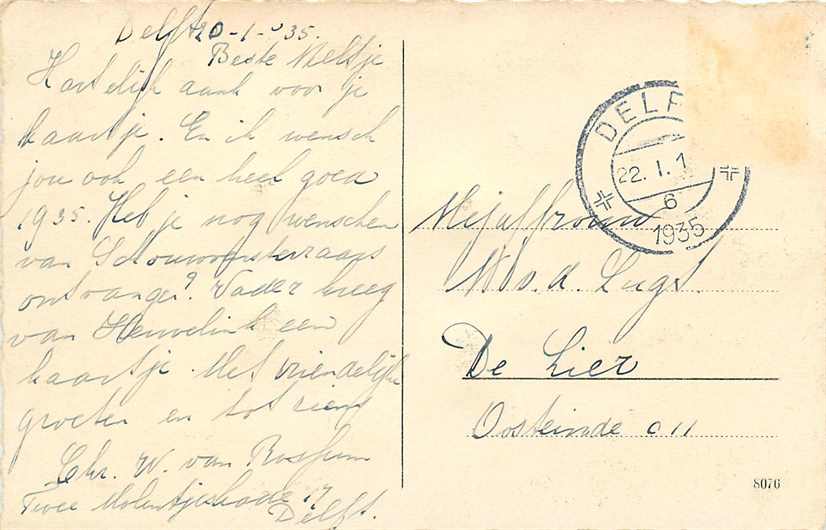 Delft 20-1-'35.
Beste Meltje
Hartelijk dank voor je
kaartje. En ik wensch
jou ook een heel goed
1935. Heb je nog wenschen
van Schouwoorsteraars
ontvangen? Vader kreeg
van Heuvelink een
kaartje. Met vriendelijke
groeten en tot ziens
Chr. W. van Rossum
Twee Molentjeskade 17
Delft.
DELF
22.I.1
6
1935
Mejuffrouw
M v.d. Lugt.
De Lier
Oosteinde C 11
8076